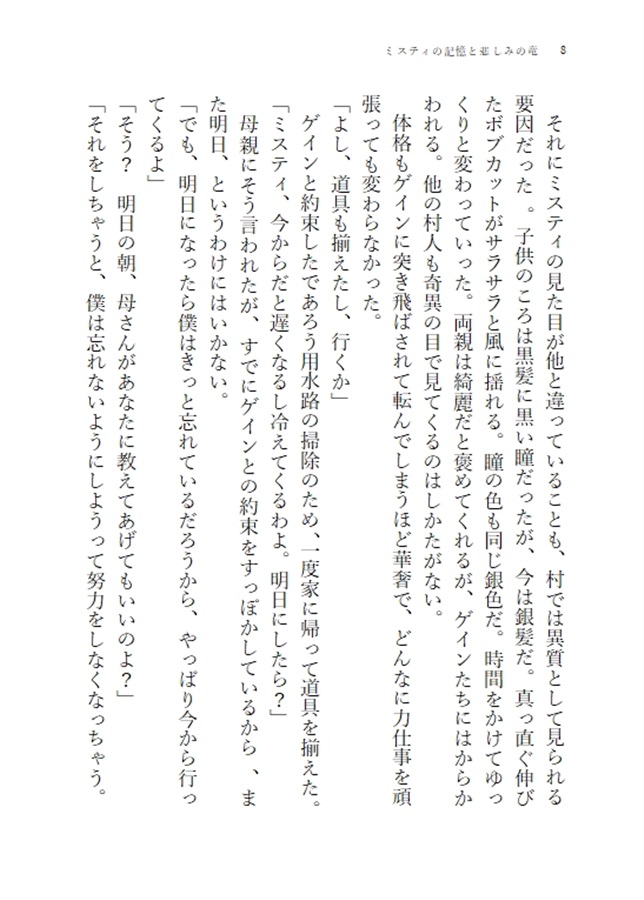 ミスティの記憶と悲しみの竜 8
それにミスティの見た目が他と違っていることも、村では異質として見られる
要因だった 。子供のころは黒髪に黒い瞳だったが、今は銀髪だ。真っ直ぐ伸び
たボブカットがサラサラと風に揺れる。瞳の色も同じ銀色だ。時間をかけてゆっ
くりと変わっていった。両親は綺麗だと褒めてくれるが、ゲインたちにはからか
われる。他の村人も奇異の目で見てくるのはしかたがない。
体格もゲインに突き飛ばされて転んでしまうほど華奢で、どんなに力仕事を頑
張っても変わらなかった。
「よし、道具も揃えたし、行くか」
ゲインと約束したであろう用水路の掃除のため、一度家に帰って道具を揃えた。
「ミスティ、今からだと遅くなるし冷えてくるわよ。明日にしたら？」
母親にそう言われたが、すでにゲインとの約束をすっぽかしているから 、ま
た明日、というわけにはいかない。
「でも、明日になったら僕はきっと忘れているだろうから、やっぱり今から行っ
てくるよ」
「そう？　明日の朝、母さんがあなたに教えてあげてもいいのよ？」
「それをしちゃうと、僕は忘れないようにしようって努力をしなくなっちゃう。